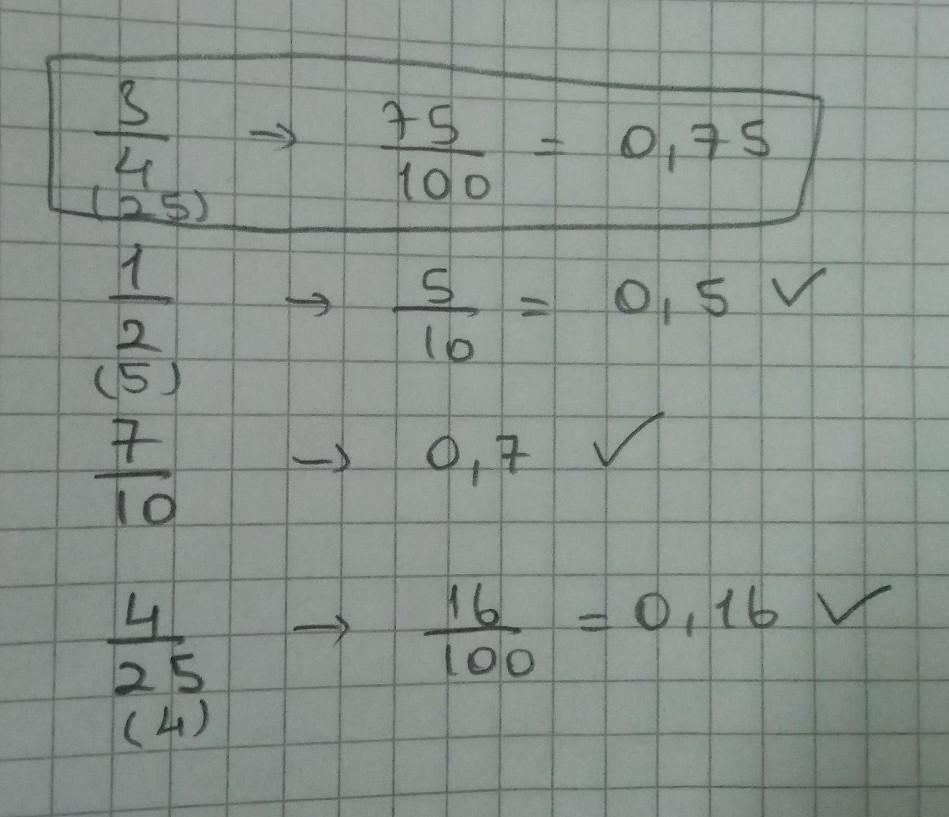 3/4 → 75/100 = 0,75
(25)
1/2 → 5/10 = 0,5 ✓
(5)
7/10 → 0,7 ✓
4/25 → 16/100 = 0,16 ✓
(4)